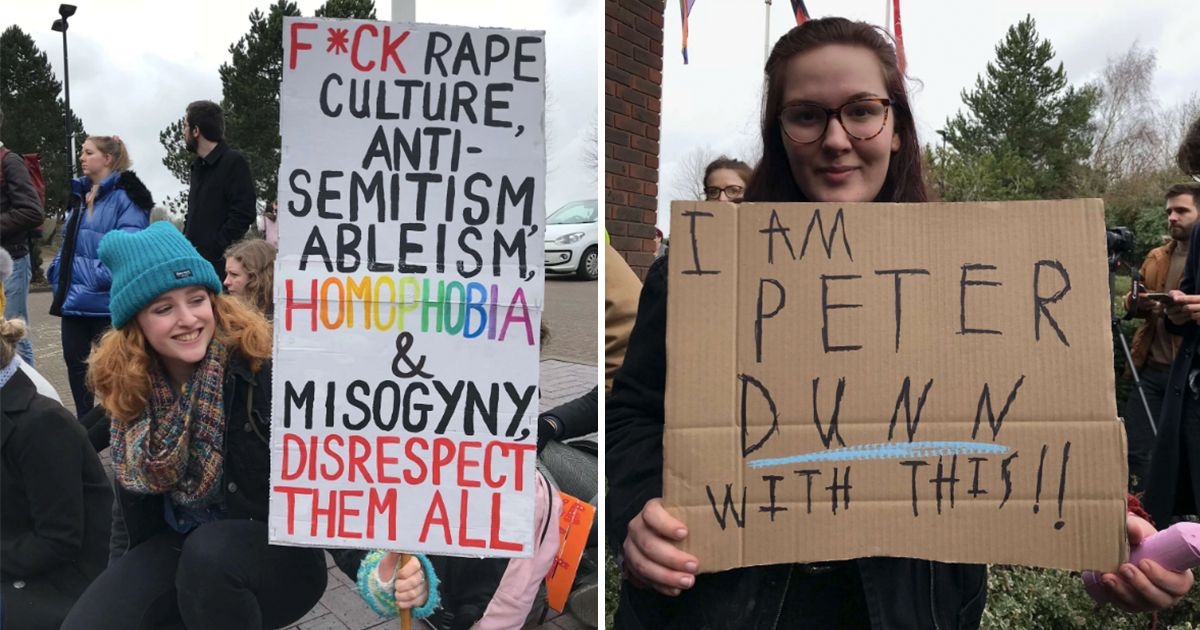 F*CK RAPE
CULTURE,
ANTI-
SEMITISM,
ABLEISM,
HOMOPHOBIA
&
MISOGYNY,
DISRESPECT
THEM ALL
I AM
PETER
DUNN
WITH THIS!!